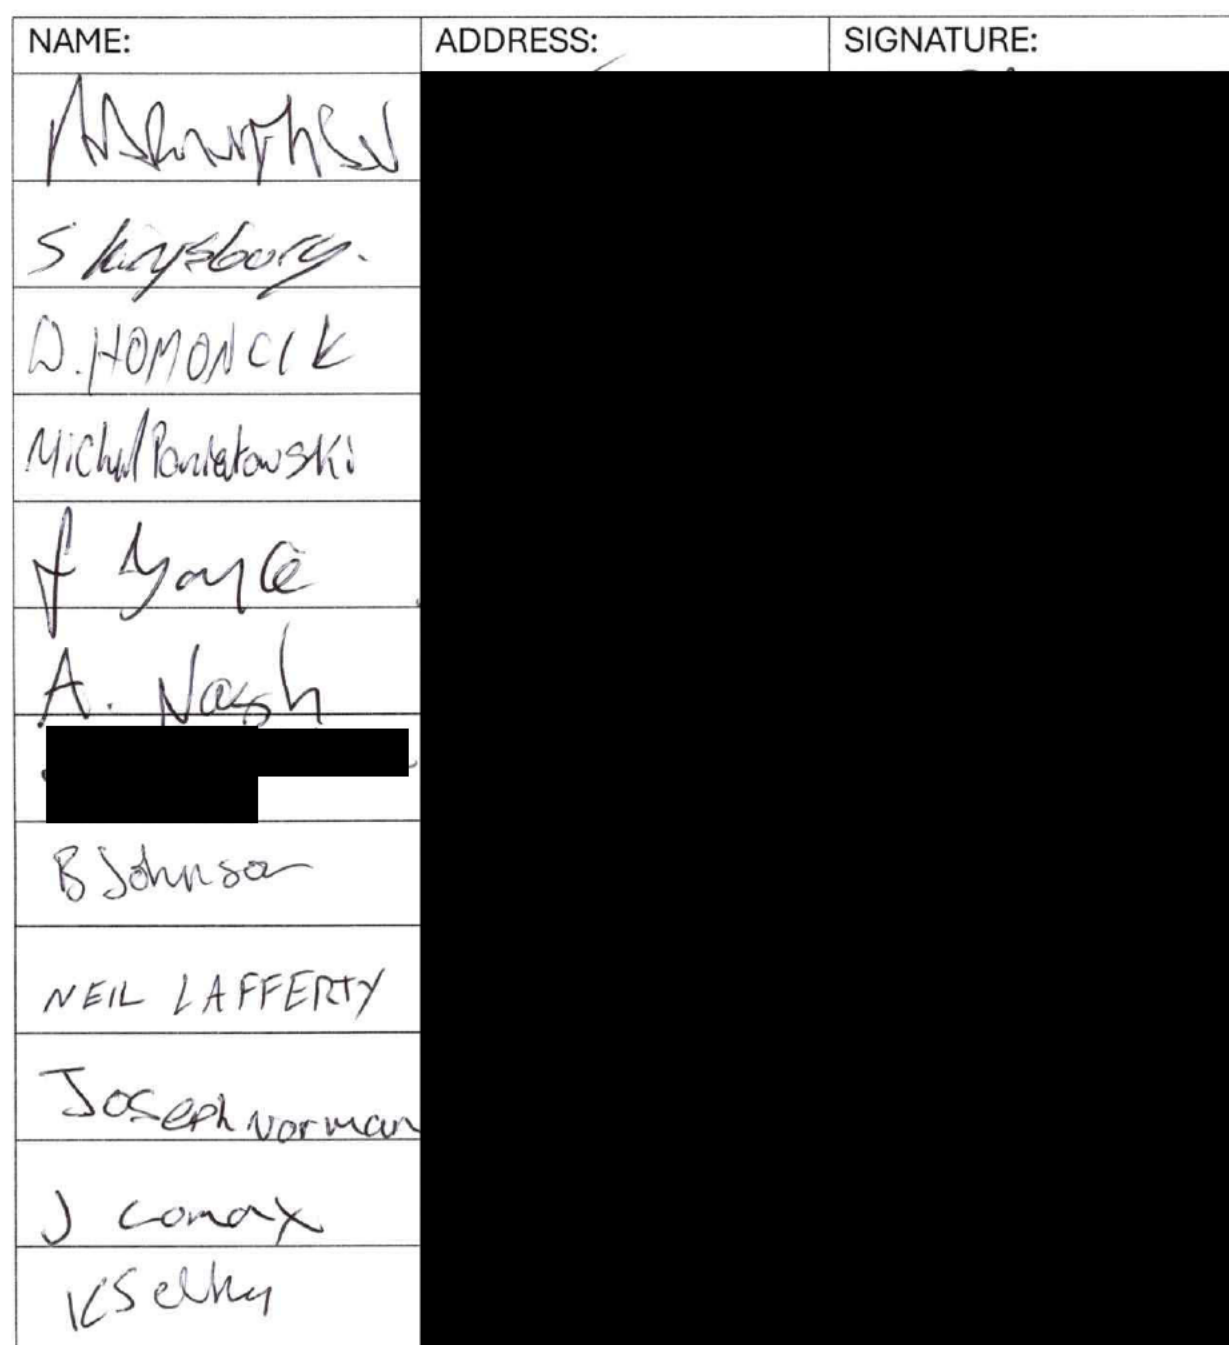 NAME: ADDRESS: SIGNATURE:
S Kingsbury.
D. HOMONCIK
Michal Poniatowski
J Joyce
A. Nash
B Johnson
NEIL LAFFERTY
Joseph Norman
J Comax
K Selby